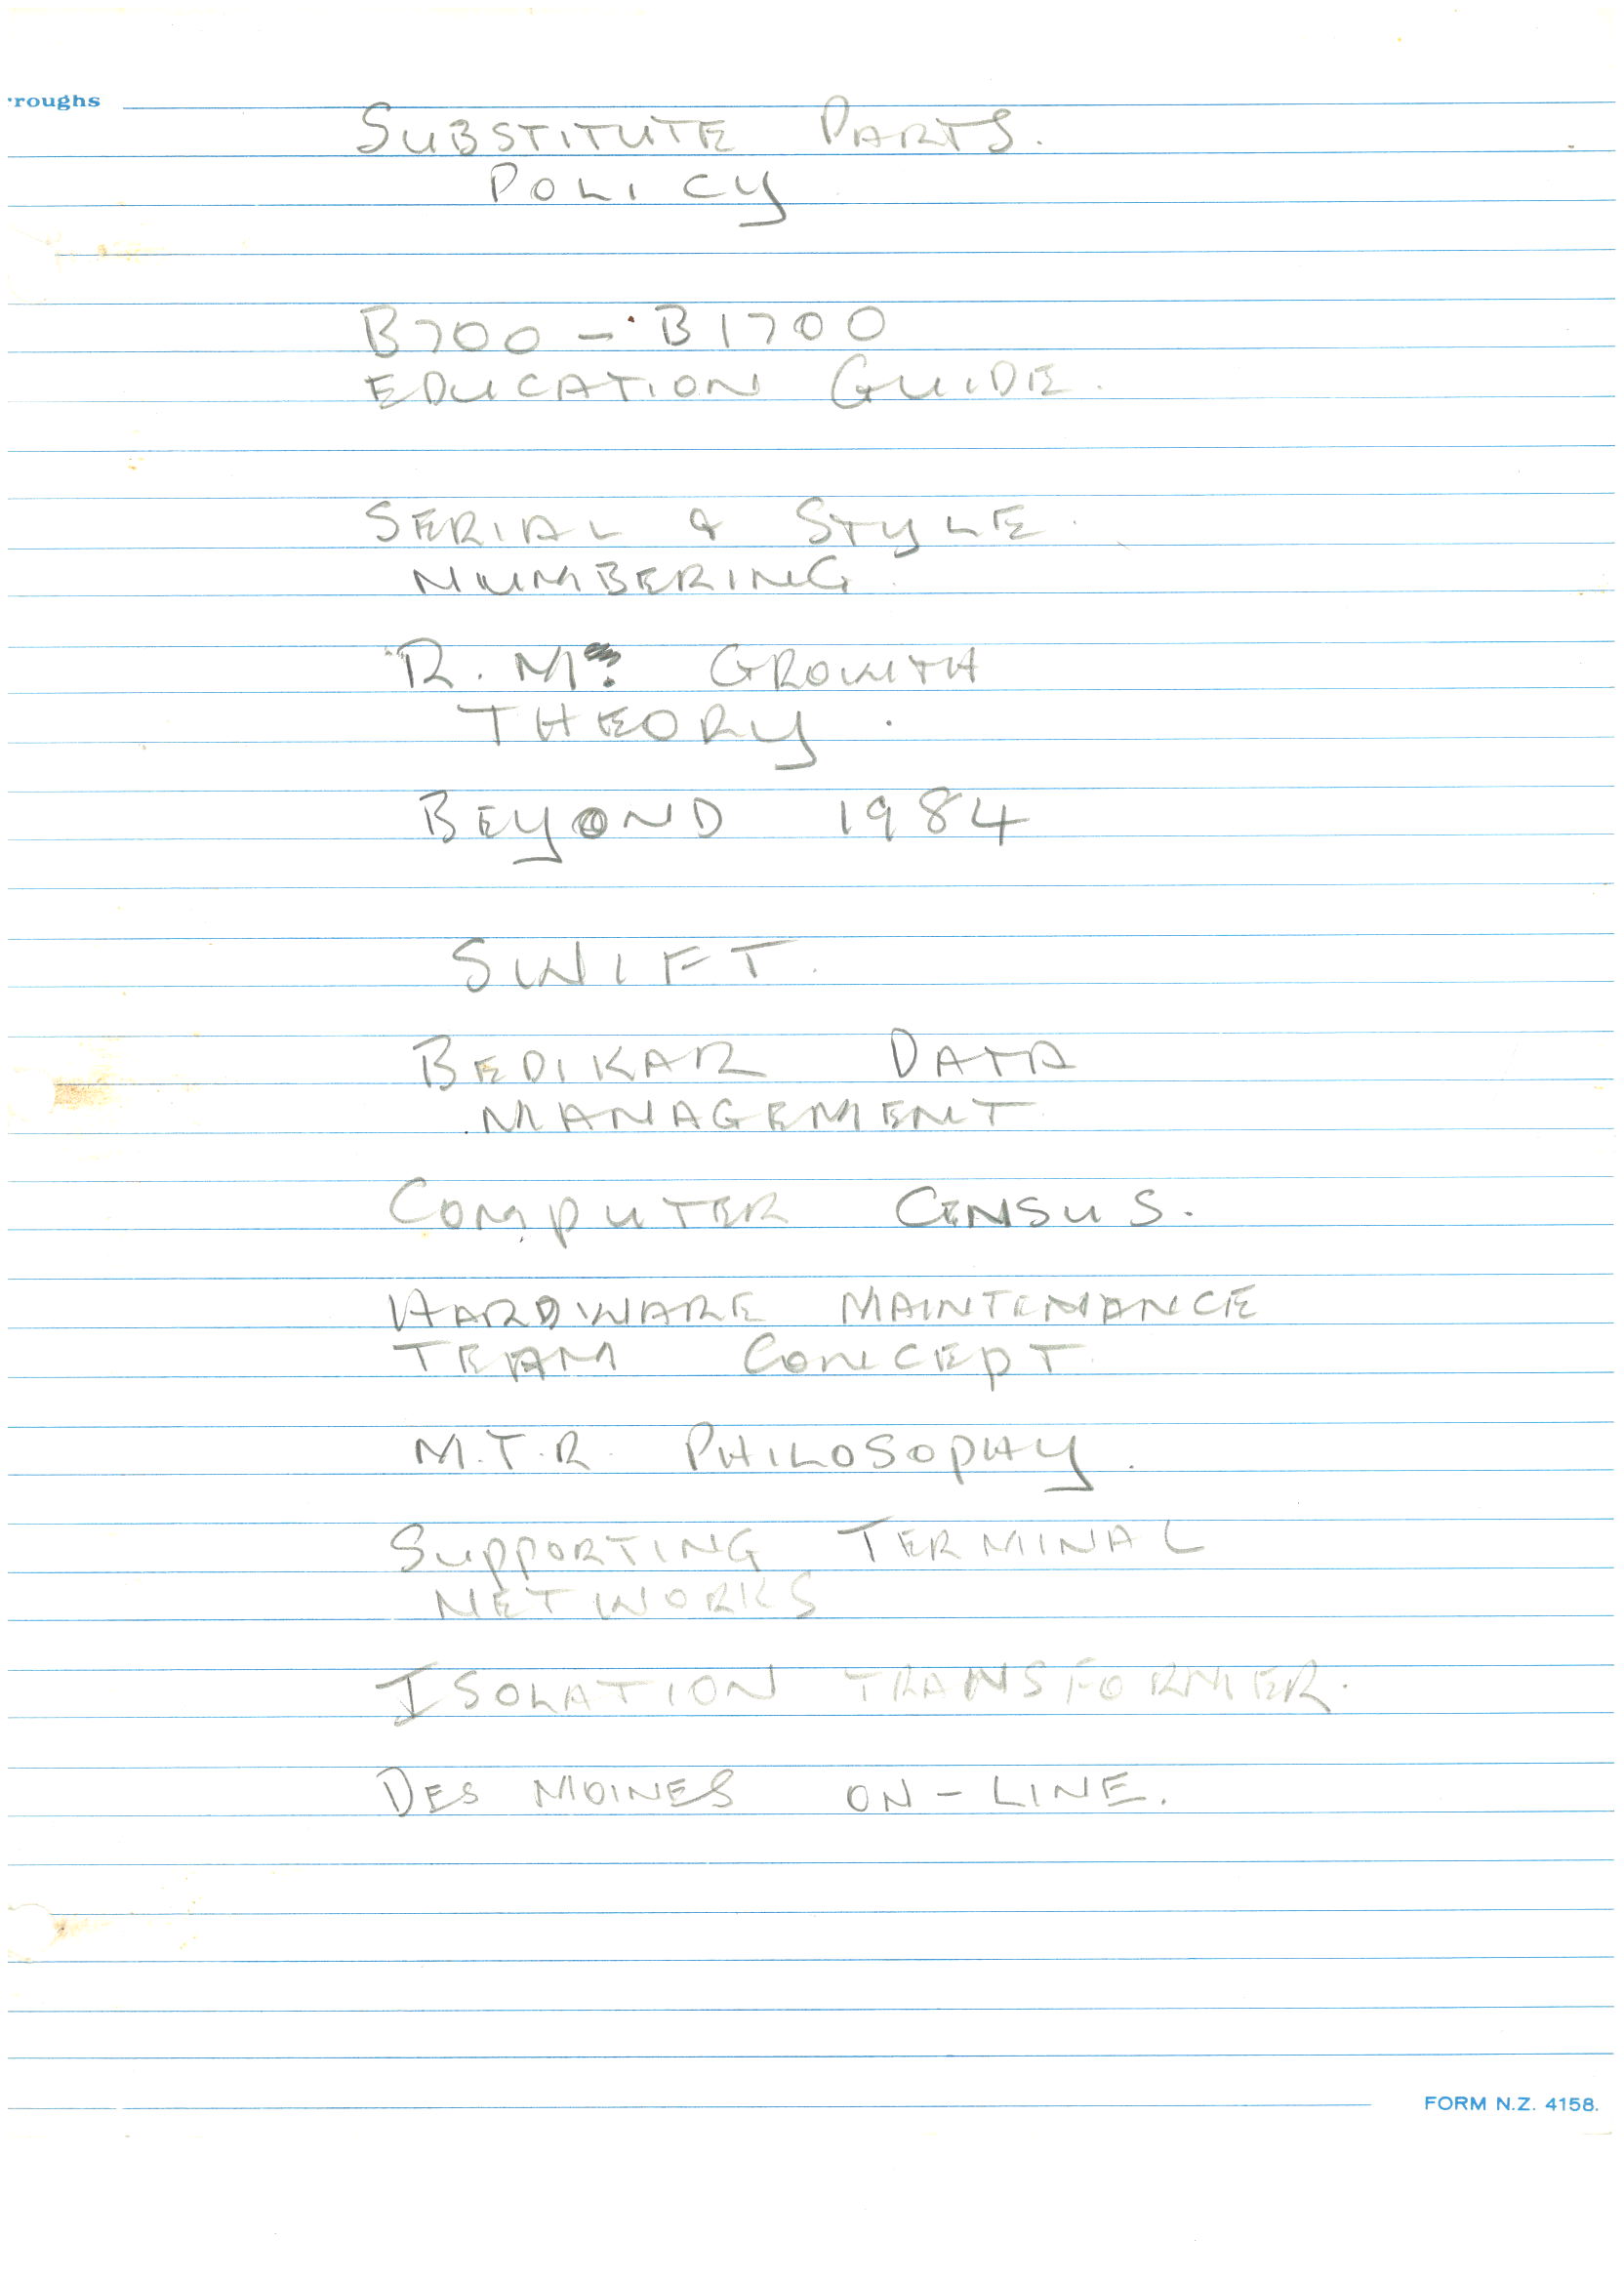 roughs
SUBSTITUTE PARTS.
POLICY
B700 - B1700
EDUCATION GUIDE.
SERIAL & STYLE.
NUMBERING.
R.M. GROWTH
THEORY.
BEYOND 1984
SWIFT.
BEDIKAR DATA
MANAGEMENT
COMPUTER CENSUS.
HARDWARE MAINTENANCE
TEAM CONCEPT.
M.T.R. PHILOSOPHY.
SUPPORTING TERMINAL
NETWORKS
ISOLATION TRANSFORMER.
DES MOINES ON-LINE.
FORM N.Z. 4158.